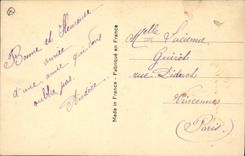 Bonne et Heureuse
année
d'une amie qui ne vous
oublie pas.
Andrée
Made in France - Fabriqué en France
Melle Lucienne
Guiriot
rue Diderot
Vincennes
(Paris)